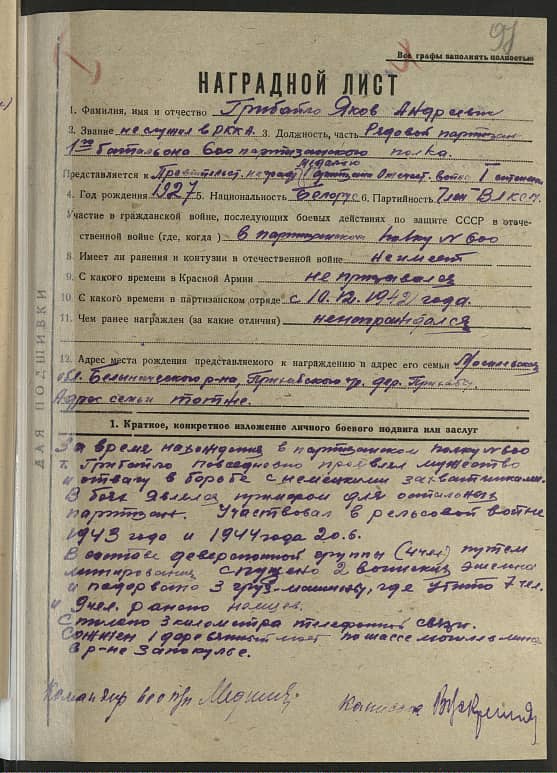 91
Все графы заполнять полностью
НАГРАДНОЙ ЛИСТ
1. Фамилия, имя и отчество Грибайло Яков Андреевич
2. Звание не служил в РККА 3. Должность, часть Рядовой партизан
1го батальона 600 партизанского полка.
Медалью
Представляется к Правительст. награде "Партизану Отечест. войны" I степени
4. Год рождения 1927 5. Национальность Белорус 6. Партийность Член ВЛКСМ
Участие в гражданской войне, последующих боевых действиях по защите СССР в отече-
ственной войне (где, когда) в партизанском полку № 600
8. Имеет ли ранения и контузии в отечественной войне не имеет
9. С какого времени в Красной Армии не призывался
10. С какого времени в партизанском отряде с 10.12.1942 года.
11. Чем ранее награжден (за какие отличия) ненаграждался
12. Адрес места рождения представляемого к награждению и адрес его семьи Могилевская
обл. Белыничского р-на, дер.
Адрес семьи тотже.
ДЛЯ ПОДШИВКИ
1. Краткое, конкретное изложение личного боевого подвига или заслуг
За время нахождения в партизанском полку № 600
т. Грибайло повседневно проявлял мужество
и отвагу в борьбе с немецкими захватчиками.
В боях являлся примером для остальных
партизан. Участвовал в рельсовой войне
1943 года и 1944 года
В составе диверсионной группы (4 чел) путем
минирования спущено 2 воинских эшелона
и подорвано 3 груз-машины, где убито 7 чел.
и 9 чел. ранено немцев.
Спилено 3 километра телефонной связи.
Сожжен 1 деревянный мост по шассе могилев минск
в р-не Запокулье.
Командир 600 пп
капитан